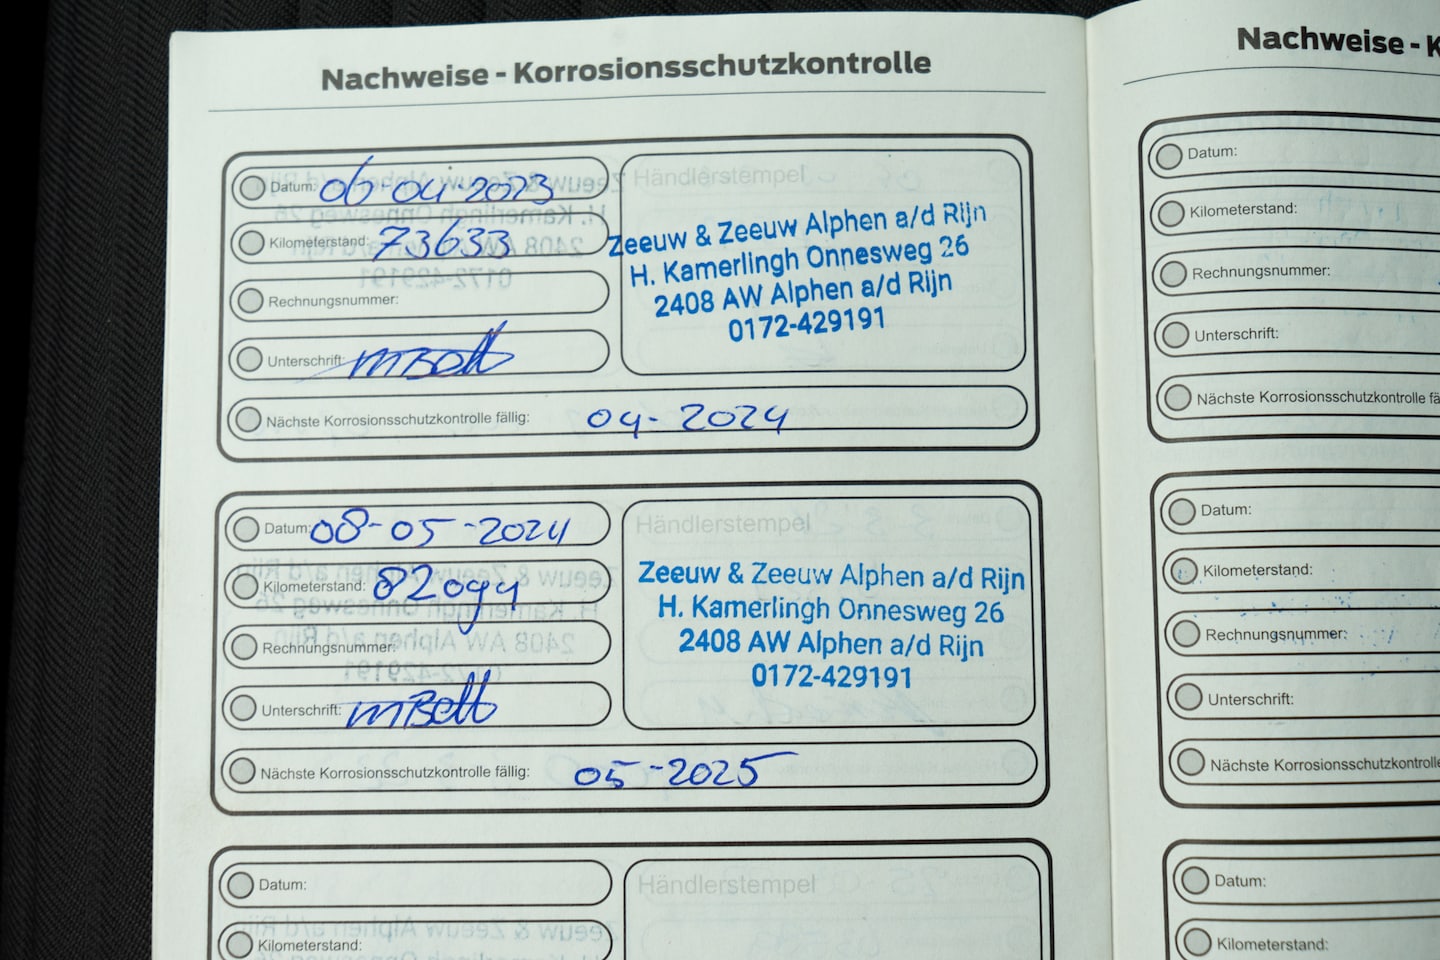 Nachweise - Korrosionsschutzkontrolle
Datum: 06-04-2023
Kilometerstand: 73633
Rechnungsnummer:
Unterschrift:
Händlerstempel
Zeeuw & Zeeuw Alphen a/d Rijn
H. Kamerlingh Onnesweg 26
2408 AW Alphen a/d Rijn
0172-429191
Nächste Korrosionsschutzkontrolle fällig: 04-2024
Datum: 08-05-2024
Kilometerstand: 82094
Rechnungsnummer:
Unterschrift:
Händlerstempel
Zeeuw & Zeeuw Alphen a/d Rijn
H. Kamerlingh Onnesweg 26
2408 AW Alphen a/d Rijn
0172-429191
Nächste Korrosionsschutzkontrolle fällig: 05-2025
Datum:
Kilometerstand:
Händlerstempel
Nachweise - K
Datum:
Kilometerstand:
Rechnungsnummer:
Unterschrift:
Nächste Korrosionsschutzkontrolle fä
Datum:
Kilometerstand:
Rechnungsnummer:
Unterschrift:
Nächste Korrosionsschutzkontrolle
Datum:
Kilometerstand: